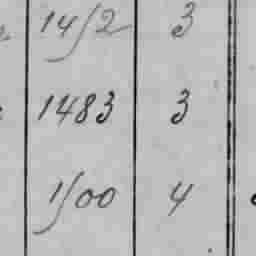 1452 3
1483 3
1500 4